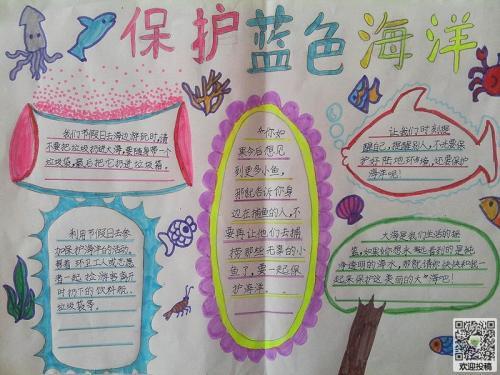 保护蓝色海洋
我们节假日去海边游玩时,请
不要把垃圾扔进大海,要随身带一个
垃圾袋,最后把它扔进垃圾箱。
利用节假日去参
加保护海洋的活动。
跟着环卫工人或志愿
者一起捡游客乱
扔扔下的饮料瓶、
垃圾袋等。
你如
果今后想见
到更多小鱼,
那就告诉你身
边在捕鱼的人,不
要再让他们去捕
捞那些无辜的小
鱼了,要一起保
护海洋
让我们时刻提
醒自己,提醒别人,不光要保
护好陆地环境,还要保护
海洋呢!
大海是我们生活的摇
篮,如果你想永远看到的是纯
净透明的海水,那就请你快快和我一
起来保护这美丽的大海吧!
欢迎投稿